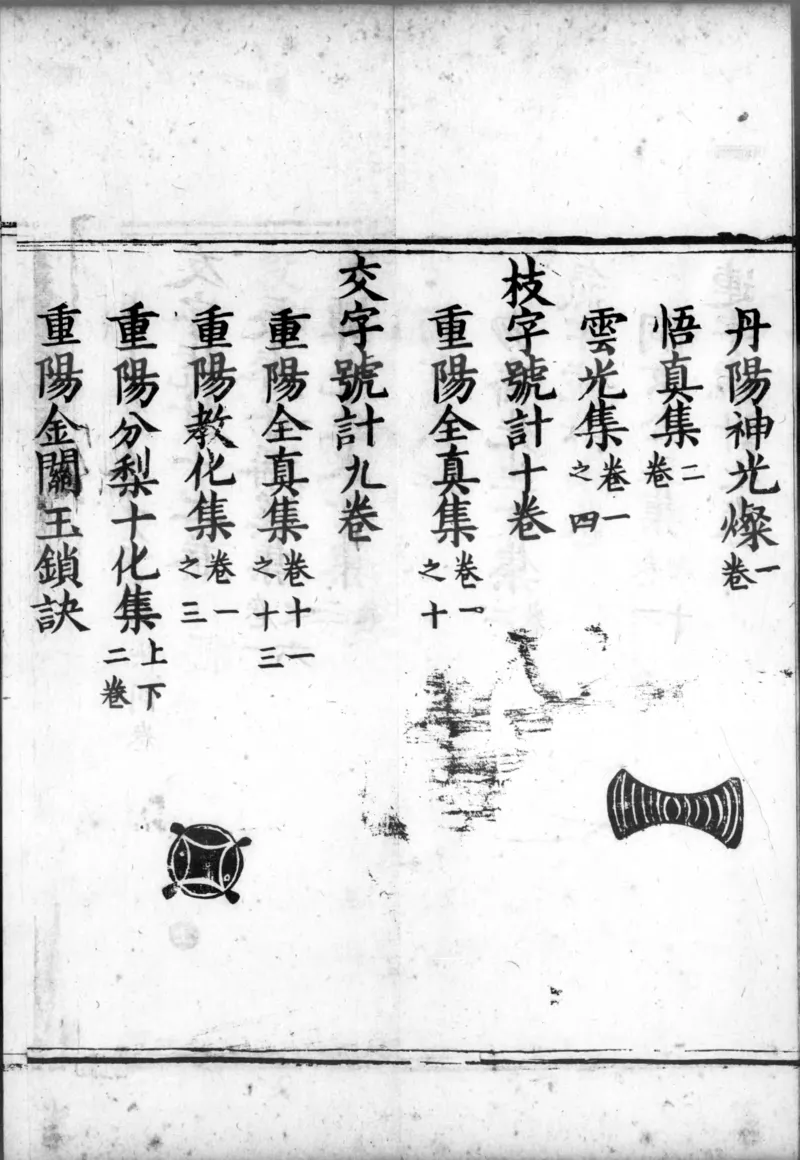 丹陽神光燦一卷
悟真集二卷
雲光集卷一之四
枝字號計十卷
重陽全真集卷一之十
交字號計九卷
重陽全真集卷十一之十三
重陽教化集卷一之三
重陽分梨十化集上下二卷
重陽金關玉鎖訣